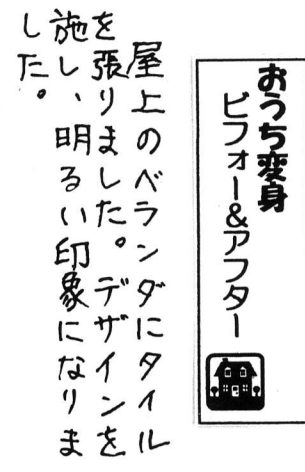 おうち変身
ビフォー&アフター
屋上のベランダにタイル
を張りました。デザインを
施し、明るい印象になりま
した。